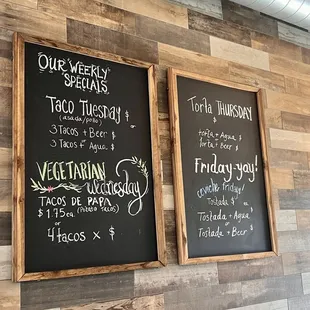 Our Weekly
Specials
Taco Tuesday
(asada/pollo)
3 Tacos + Beer $
3 Tacos + Agua $
VEGETARIAN
Wednesday
TACOS DE PAPA
$1.75 ea. (Potato tacos)
or
4 tacos x $
Torta THURSDAY
torta + Agua $
torta + Beer $
Friday-yay!
ceviche friday!
Tostada $
Tostada + Agua $
or
Tostada + Beer $